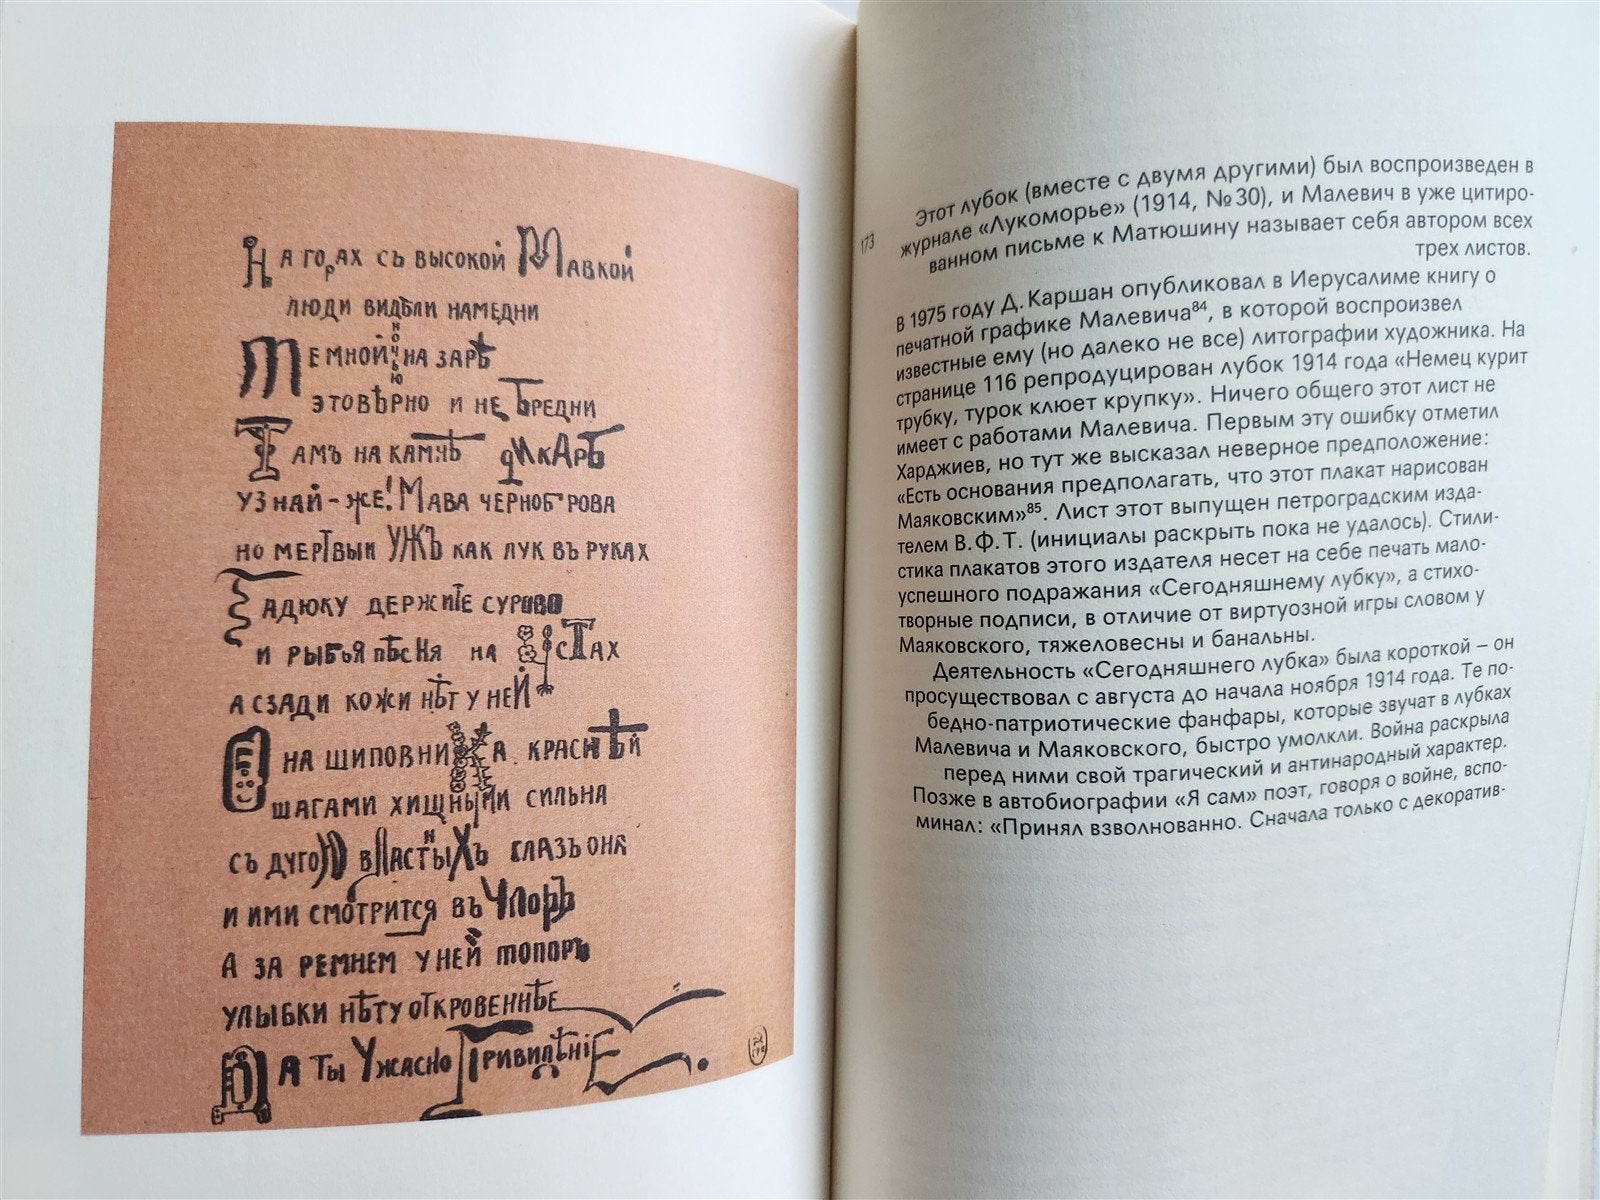 На горахъ съ высокой Мавкой
люди видѣли намедни
Темной ночью на зарѣ
это вѣрно и не бредни
Тамъ на камнѣ дикарь
узнай-же! Мава черноброва
но мертвый ужъ как лук въ руках
Гадюку держите сурово
и рыбья пѣсня на устах
а сзади кожи нѣт у ней
Она шиповника краснѣй
шагами хищными сильна
съ дугой властныхъ глазъ она
и ими смотрится въ упоръ
А за ремнем у ней топоръ
улыбки нѣту откровеннѣе
Да ты ужасно привидѣніе.
173
Этот лубок (вместе с двумя другими) был воспроизведен в
журнале «Лукоморье» (1914, №30), и Малевич в уже цитиро-
ванном письме к Матюшину называет себя автором всех
трех листов.
В 1975 году Д. Каршан опубликовал в Иерусалиме книгу о
печатной графике Малевича⁸⁴, в которой воспроизвел
известные ему (но далеко не все) литографии художника. На
странице 116 репродуцирован лубок 1914 года «Немец курит
трубку, турок клюет крупку». Ничего общего этот лист не
имеет с работами Малевича. Первым эту ошибку отметил
Харджиев, но тут же высказал неверное предположение:
«Есть основания предполагать, что этот плакат нарисован
Маяковским»⁸⁵. Лист этот выпущен петроградским изда-
телем В.Ф.Т. (инициалы раскрыть пока не удалось). Стили-
стика плакатов этого издателя несет на себе печать мало-
успешного подражания «Сегодняшнему лубку», а стихо-
творные подписи, в отличие от виртуозной игры словом у
Маяковского, тяжеловесны и банальны.
Деятельность «Сегодняшнего лубка» была короткой – он
просуществовал с августа до начала ноября 1914 года. Те по-
бедно-патриотические фанфары, которые звучат в лубках
Малевича и Маяковского, быстро умолкли. Война раскрыла
перед ними свой трагический и антинародный характер.
Позже в автобиографии «Я сам» поэт, говоря о войне, вспо-
минал: «Принял взволнованно. Сначала только с декоратив-